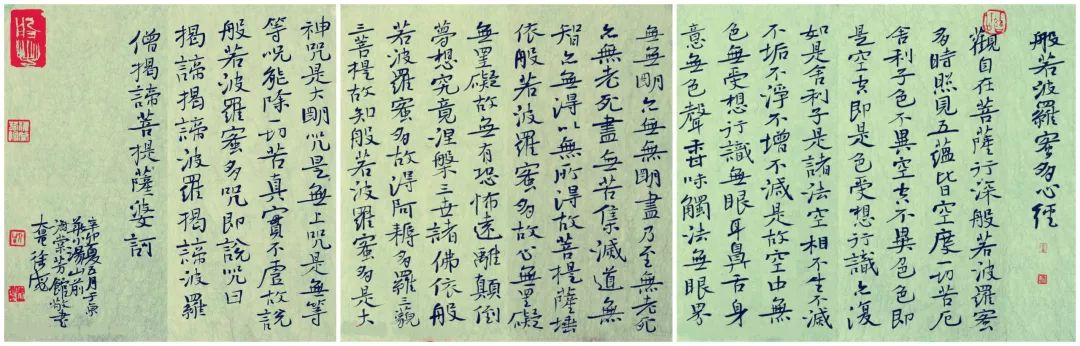 般若波羅蜜多心經
觀自在菩薩行深般若波羅蜜
多時照見五蘊皆空度一切苦厄
舍利子色不異空空不異色色即
是空空即是色受想行識亦復
如是舍利子是諸法空相不生不滅
不垢不淨不增不減是故空中無
色無受想行識無眼耳鼻舌身
意無色聲香味觸法無眼界
無無明亦無無明盡乃至無老死
亦無老死盡無苦集滅道無
智亦無得以無所得故菩提薩埵
依般若波羅蜜多故心無罣礙
無罣礙故無有恐怖遠離顛倒
夢想究竟涅槃三世諸佛依般
若波羅蜜多故得阿耨多羅三藐
三菩提故知般若波羅蜜多是大
神咒是大明咒是無上咒是無等
等咒能除一切苦真實不虛故說
般若波羅蜜多咒即說咒曰
揭諦揭諦波羅揭諦波羅
僧揭諦菩提薩婆訶
辛卯夏五月于京
郊小湯山前
海棠芳館敬書